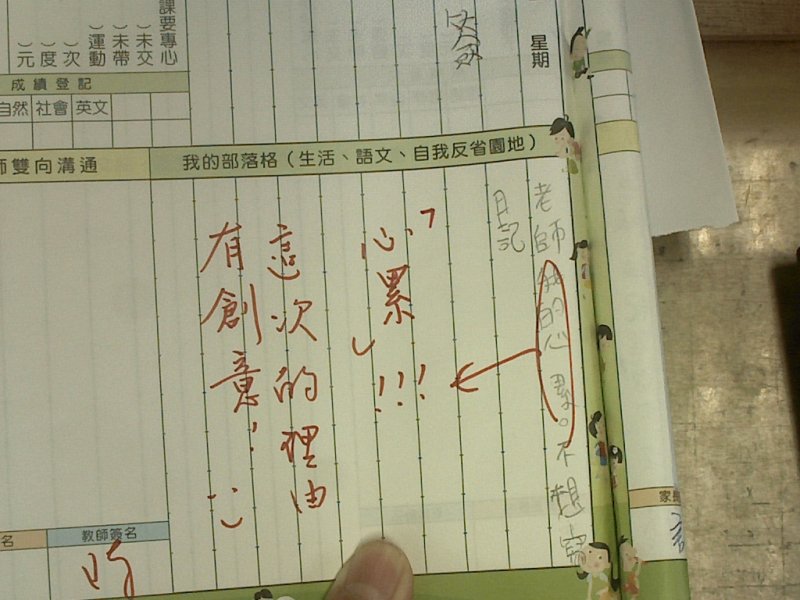 課要專心
︶未交
︶未帶
︶運動
︶次
︶度
︶元
星期
成績登記
自然 社會 英文
師雙向溝通
我的部落格（生活、語文、自我反省園地）
老師我的心累。不想寫
日記
「心累」!!!
這次的理由
有創意! :)
教師簽名
名
家長